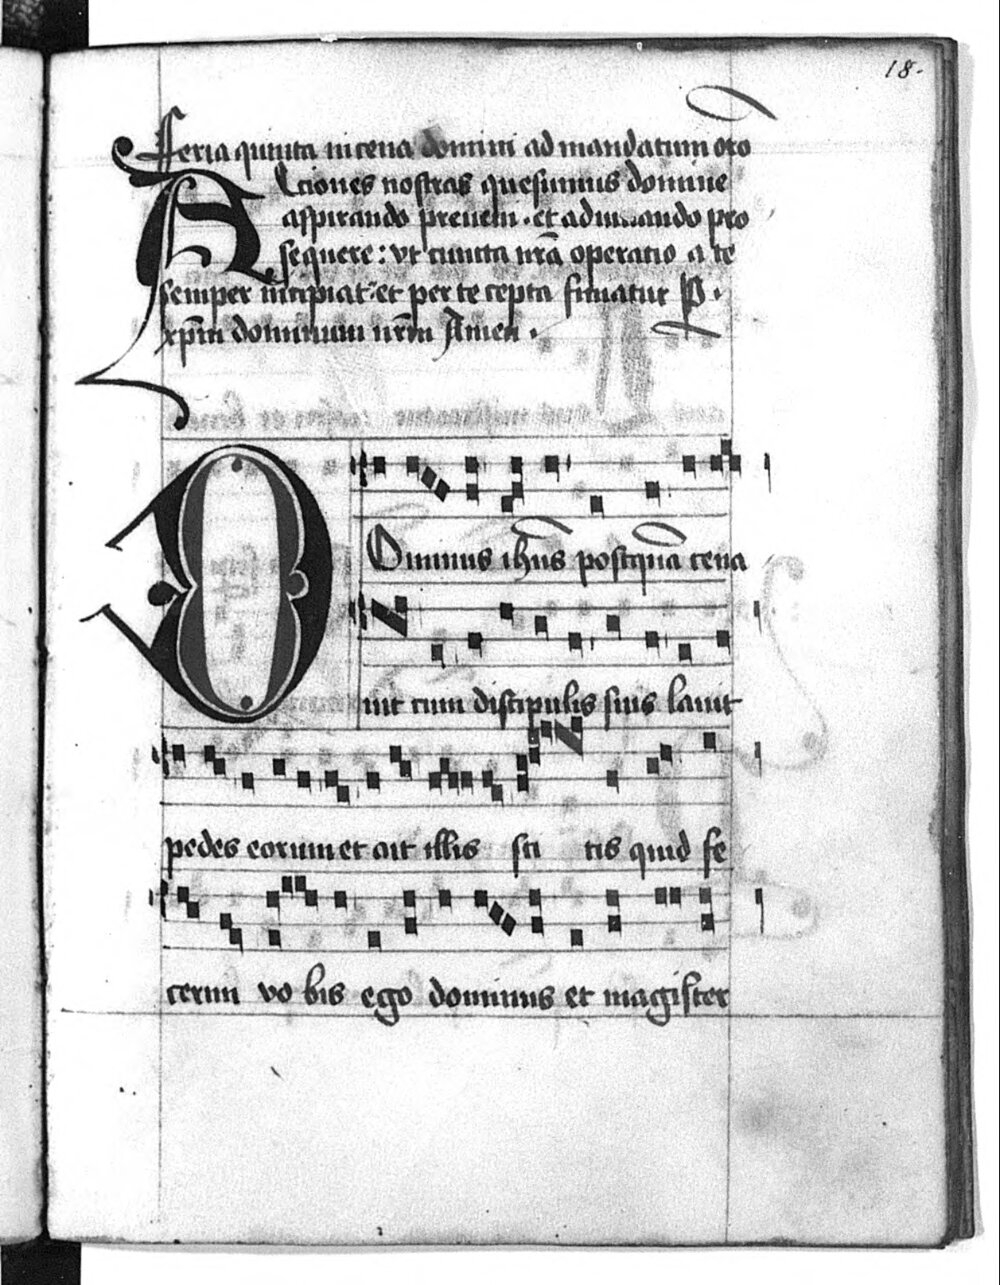 18.
Feria quinta in cena domini ad mandatum oro
Actiones nostras quesumus domine
aspirando preueni. et adiuuando pro
sequere: vt cuncta nr̄a operatio a te
semper incipiat. et per te cepta finiatur P.
xp̄m dominum nr̄m Amen.
Dominus ih̄us postqua̅ cena
uit cum discipulis suis lauit
pedes eorum et ait illis sci tis quid fe
cerim vo bis ego dominus et magister